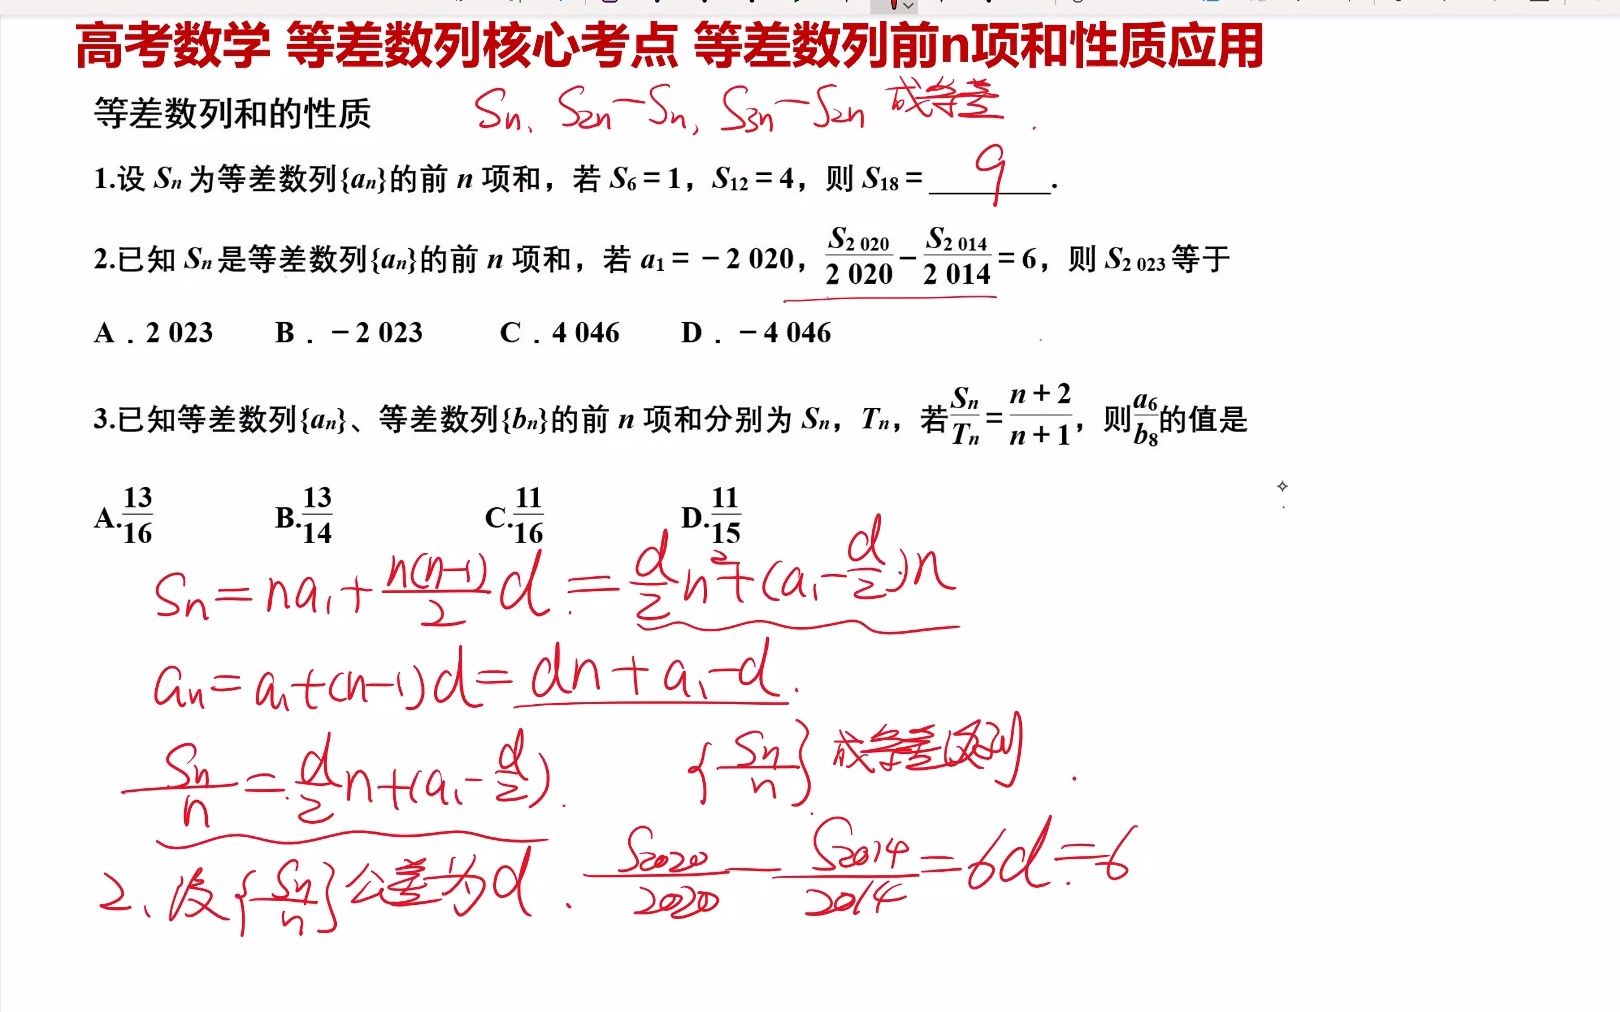 高考数学 等差数列核心考点 等差数列前n项和性质应用
等差数列和的性质 Sn、S2n-Sn, S3n-S2n 成等差.
1.设 Sn 为等差数列{an}的前 n 项和，若 S6=1，S12=4，则 S18=___9___.
2.已知 Sn 是等差数列{an}的前 n 项和，若 a1=-2 020，S2 020/2 020-S2 014/2 014=6，则 S2 023 等于
A．2 023 B．-2 023 C．4 046 D．-4 046
3.已知等差数列{an}、等差数列{bn}的前 n 项和分别为 Sn，Tn，若Sn/Tn=n+2/n+1，则a6/b8的值是
A.13/16 B.13/14 C.11/16 D.11/15
Sn=na1+n(n-1)/2 d=d/2 n²+(a1-d/2)n
an=a1+(n-1)d=dn+a1-d.
Sn/n=d/2 n+(a1-d/2). {Sn/n}成等差数列.
2、设{Sn/n}公差为d. S2020/2020-S2014/2014=6d=6